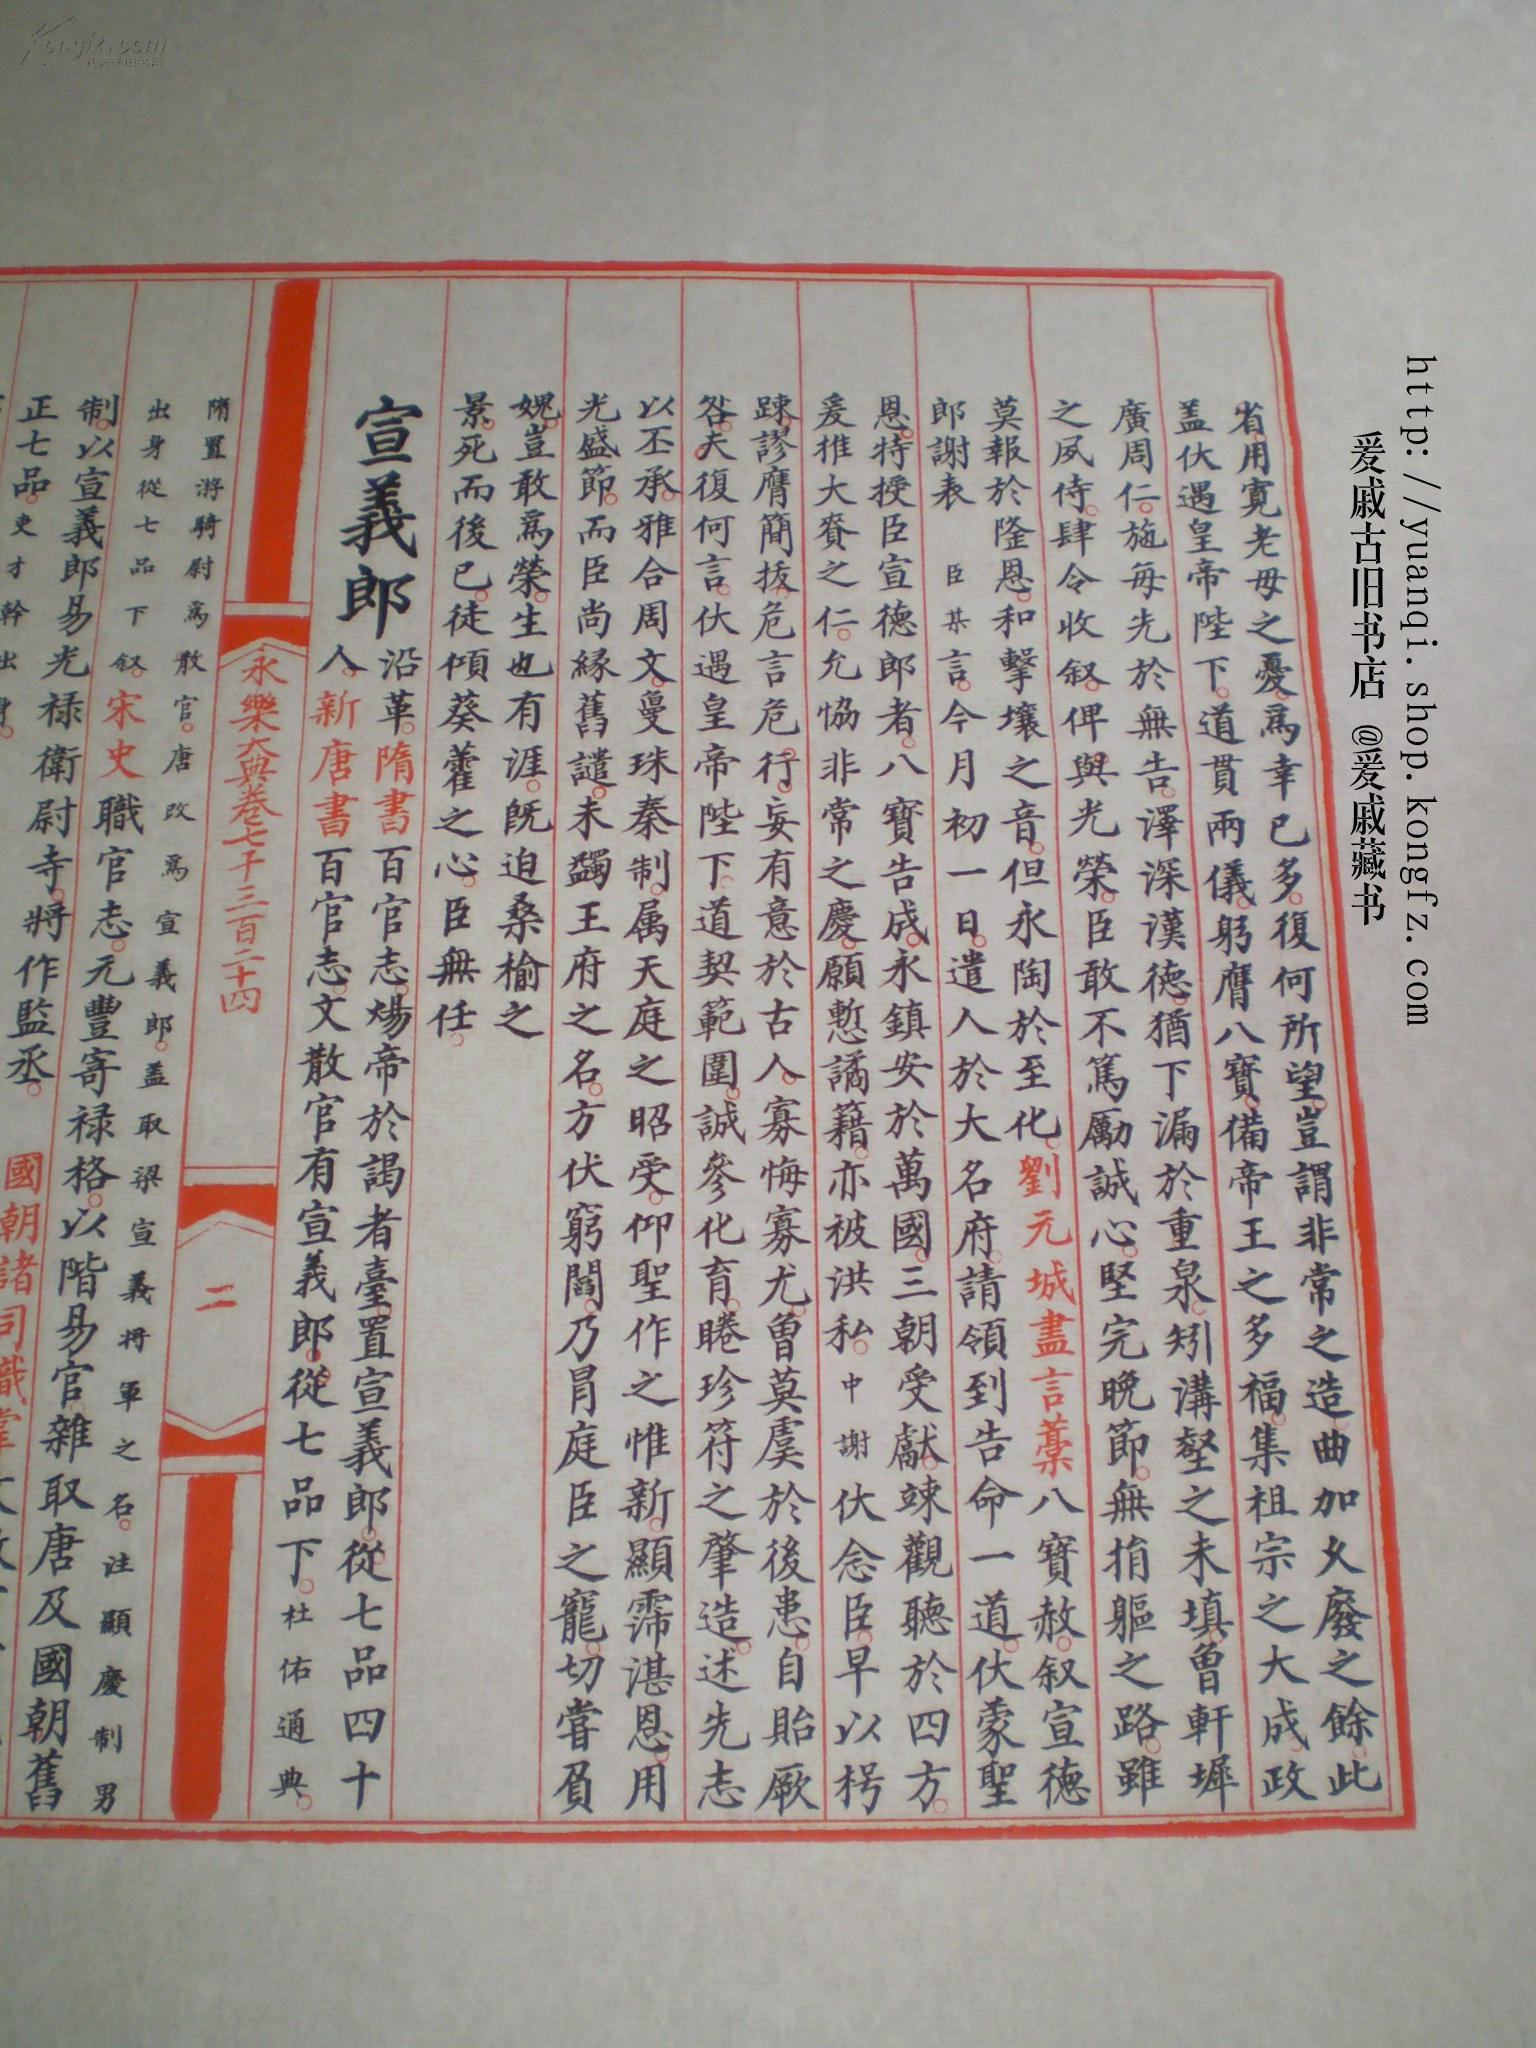 省用寬老母之憂爲幸已多復何所望豈謂非常之造曲加久廢之餘此
盖伏遇皇帝陛下道貫兩儀躬膺八寶備帝王之多福集祖宗之大成政
廣周仁施每先於無告澤深漢德猶下漏於重泉矧溝壑之未填曾軒墀
之夙侍肆令收叙俾與光榮臣敢不篤厲誠心堅完晚節無捐軀之路雖
莫報於隆恩和擊壤之音但永陶於至化劉元城盡言藁八寶赦叙宣德
郎謝表 臣某言今月初一日遣人於大名府請領到告命一道伏蒙聖
恩特授臣宣德郎者八寶告成永鎮安於萬國三朝受獻竦觀聽於四方
爰推大賚之仁允協非常之慶願慙譎籍亦被洪私中謝伏念臣早以枵
踈謬膺簡拔危言危行妄有意於古人寡悔寡尤曾莫虞於後患自貽厥
咎夫復何言伏遇皇帝陛下道契範圍誠參化育睠珍符之肇造述先志
以丕承雅合周文曼珠秦制属天庭之昭受仰聖作之惟新顯霈湛恩用
光盛節而臣尚緣舊譴未蠲王府之名方伏窮閻乃冒庭臣之寵切嘗負
媿豈敢爲榮生也有涯既迫桑榆之
景死而後已徒傾葵藿之心臣無任
宣義郎
沿革隋書百官志煬帝於謁者臺置宣義郎從七品四十
人新唐書百官志文散官有宣義郎從七品下杜佑通典
永樂大典卷七千三百二十四
二
隋置游騎尉爲散官唐改爲宣義郎盖取梁宣義将軍之名注顯慶制男
出身從七品下叙宋史職官志元豐寄禄格以階易官雜取唐及國朝舊
制以宣義郎易光禄衛尉寺將作監丞
正七品吏才幹出身
國朝諸司職掌
http://yuanqi.shop.kongfz.com
爰戚古旧书店 @爰戚藏书
Kongfz.com